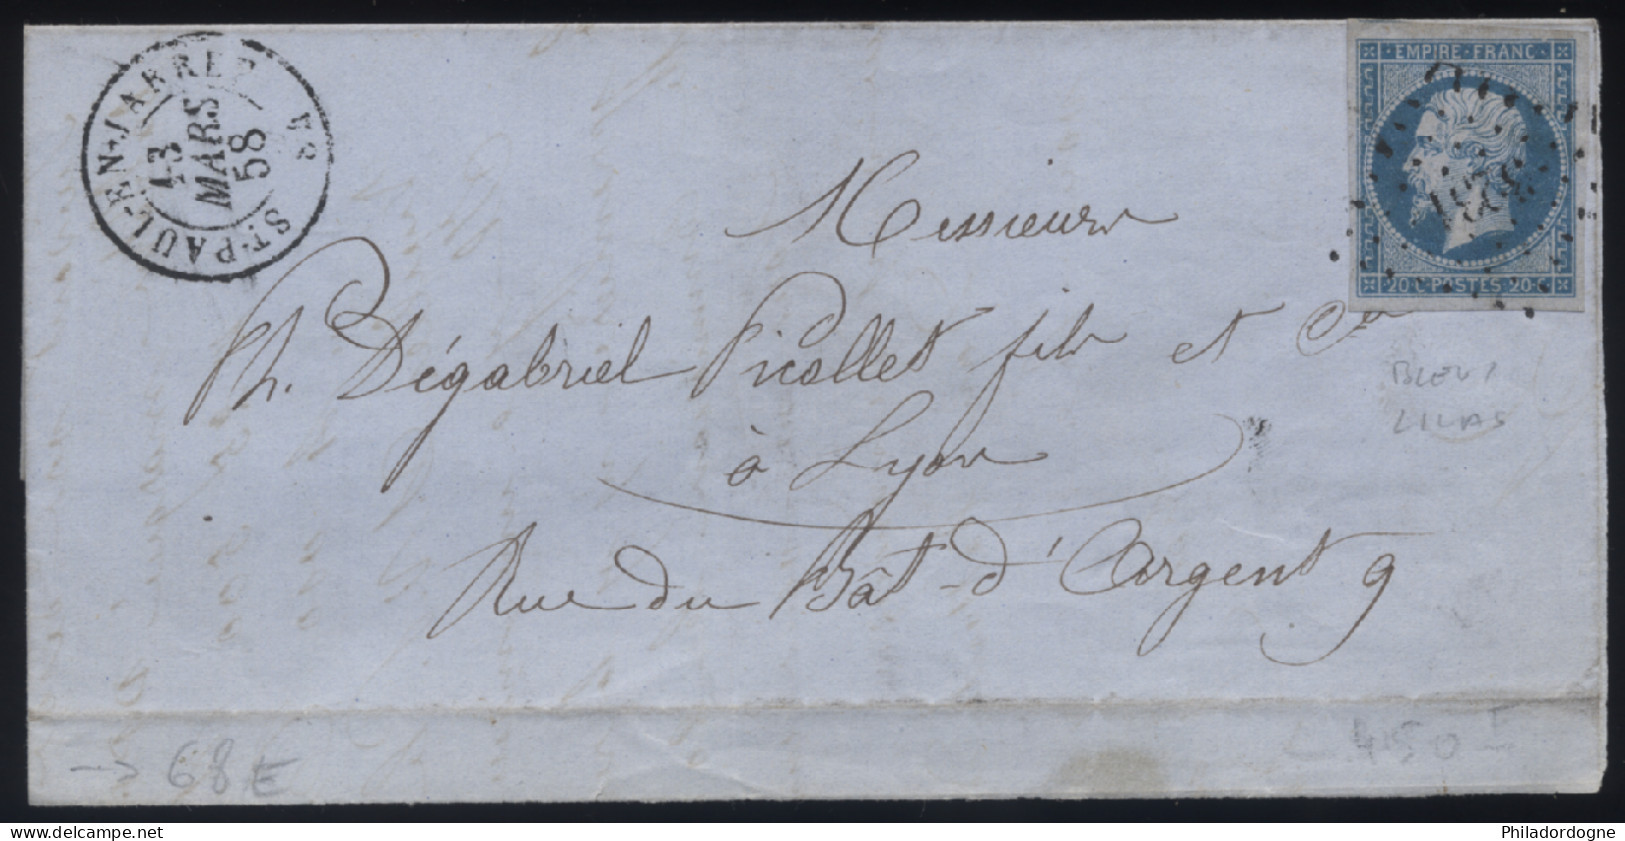 ST-PAUL-EN-JARRET
13
MARS
58
EMPIRE · FRANC
20 · C · POSTES · 20 · C
Messieurs
Ph. Dégabriel Picollet fils et Cie
à Lyon
Rue du Bât-d'Argent 9
BLEU
LILAS
68 E
450 F
delcampe.net
Philadordogne